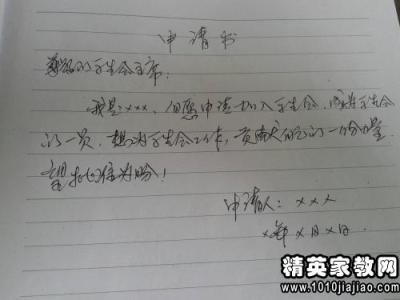 申请书
尊敬的学生会主席:
我是×××,但愿申请加入学生会,成为学生会
的一员,想为学生会工作,贡献自己的一份力量.
望批准为盼!
申请人: ×××
×年×月×日.
精英家教网
www.1010jiajiao.com